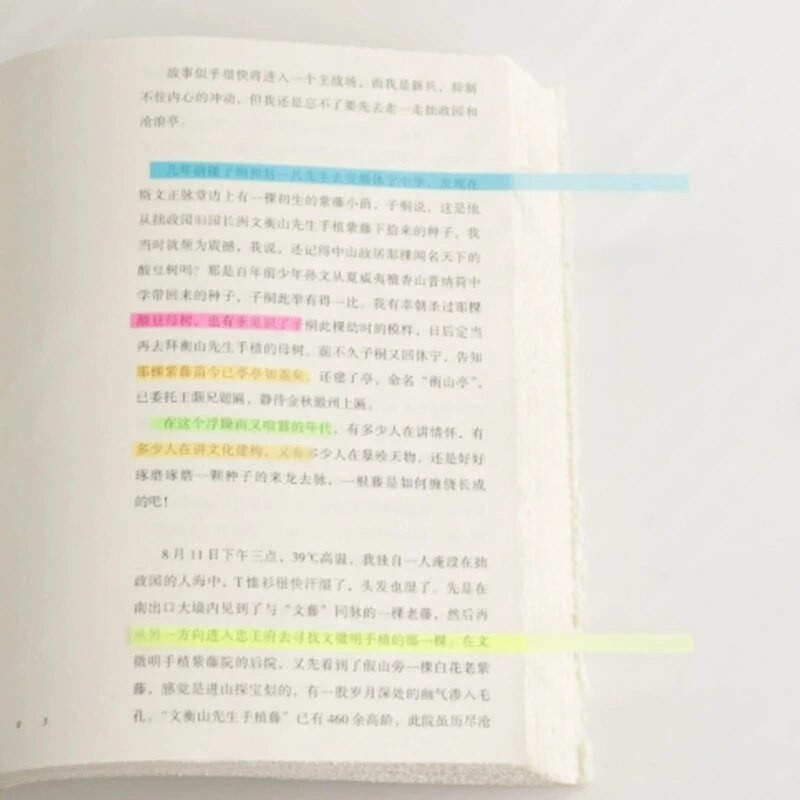 故事似乎很快将进入一个主战场，而我是新兵，抑制
不住内心的冲动，但我还是忘不了要先去走一走拙政园和
沧浪亭。
几年前随子桐和赵一凡先生去安徽休宁中学，发现在
斯文正脉堂边上有一棵初生的紫藤小苗，子桐说，这是他
从拙政园旧园长洲文衡山先生手植紫藤下拾来的种子，我
当时就颇为震撼，我说，还记得中山故居那棵闻名天下的
酸豆树吗？那是百年前少年孙文从夏威夷檀香山普纳荷中
学带回来的种子，子桐此举有得一比。我有幸朝圣过那棵
酸豆母树，也有幸见识了子桐此棵幼时的模样，日后定当
再去拜衡山先生手植的母树。前不久子桐又回休宁，告知
那棵紫藤苗今已亭亭如盖矣，还建了亭，命名“衡山亭”，
已委托王灏兄题匾，静待金秋徽州上匾。
在这个浮躁而又喧嚣的年代，有多少人在讲情怀，有
多少人在讲文化建构，又有多少人在暴殄天物，还是好好
琢磨琢磨一颗种子的来龙去脉，一根藤是如何缠绕长成
的吧！
8月11日下午三点，39℃高温，我独自一人淹没在拙
政园的人海中，T恤衫很快汗湿了，头发也湿了。先是在
南出口大墙内见到了与“文藤”同脉的一棵老藤，然后再
从另一方向进入忠王府去寻找文徵明手植的那一棵。在文
徵明手植紫藤院的后院，又先看到了假山旁一棵白花老紫
藤，感觉是进山探宝似的，有一股岁月深处的幽气渗入毛
孔。“文衡山先生手植藤”已有460余高龄，此院虽历尽沧